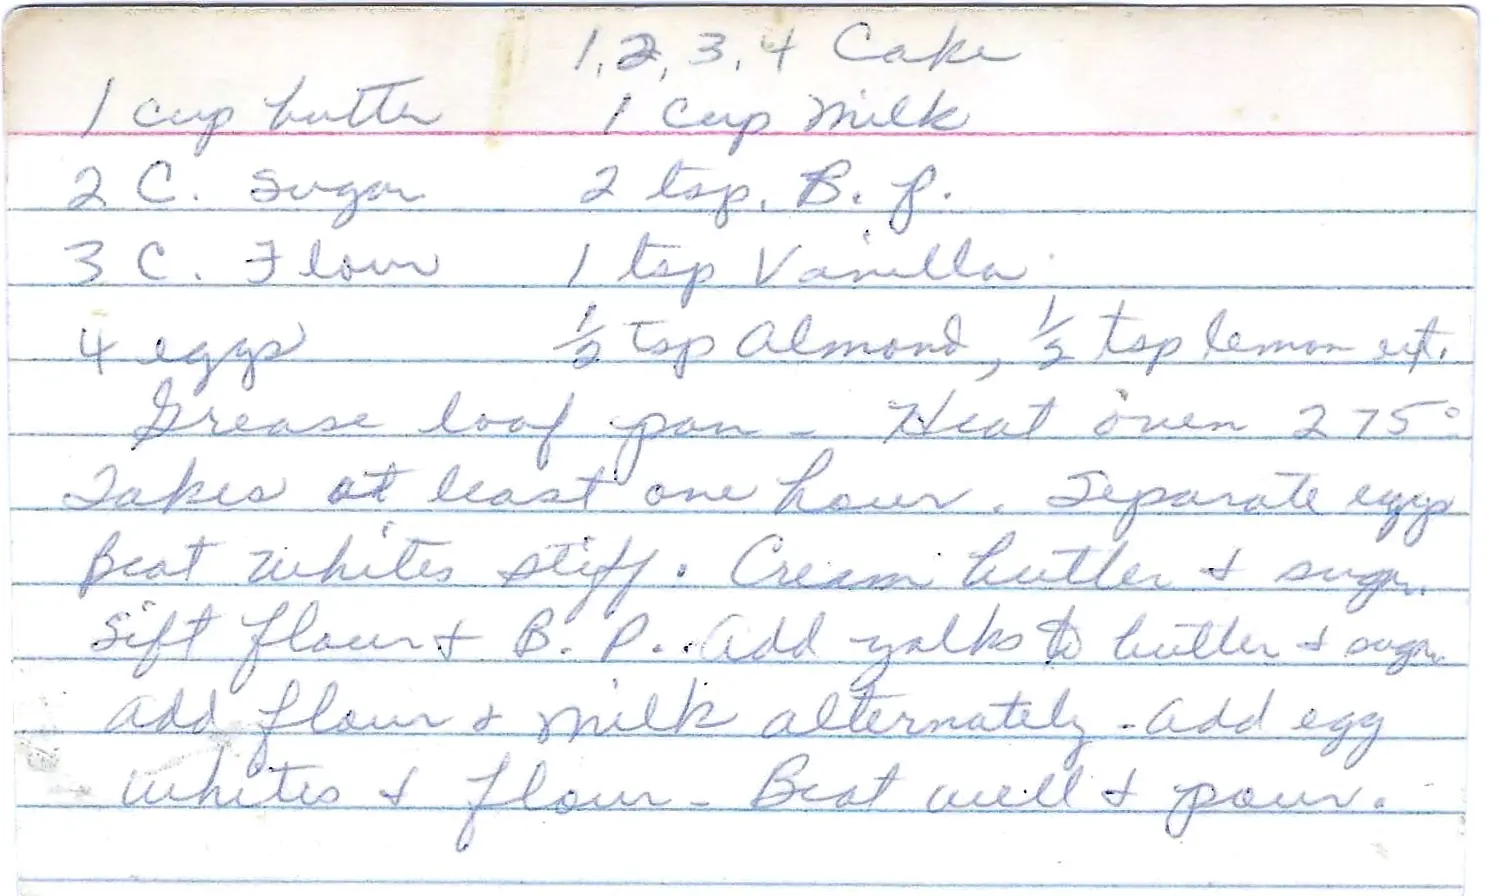 1, 2, 3, 4 Cake
1 cup butter 1 cup Milk
2 C. Sugar 2 tsp. B. p.
3 C. Flour 1 tsp Vanilla
4 eggs 1/2 tsp Almond, 1/2 tsp lemon ext.
Grease loaf pan - Heat oven 275°
Takes at least one hour. Separate eggs
Beat whites stiff. Cream butter & sugar.
Sift flour & B. P. Add yolks to butter & sugar
add flour & milk alternately - add egg
whites & flour - Beat well & pour.